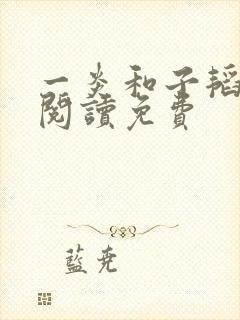 一炎和子韜
閱讀免費
藍堯